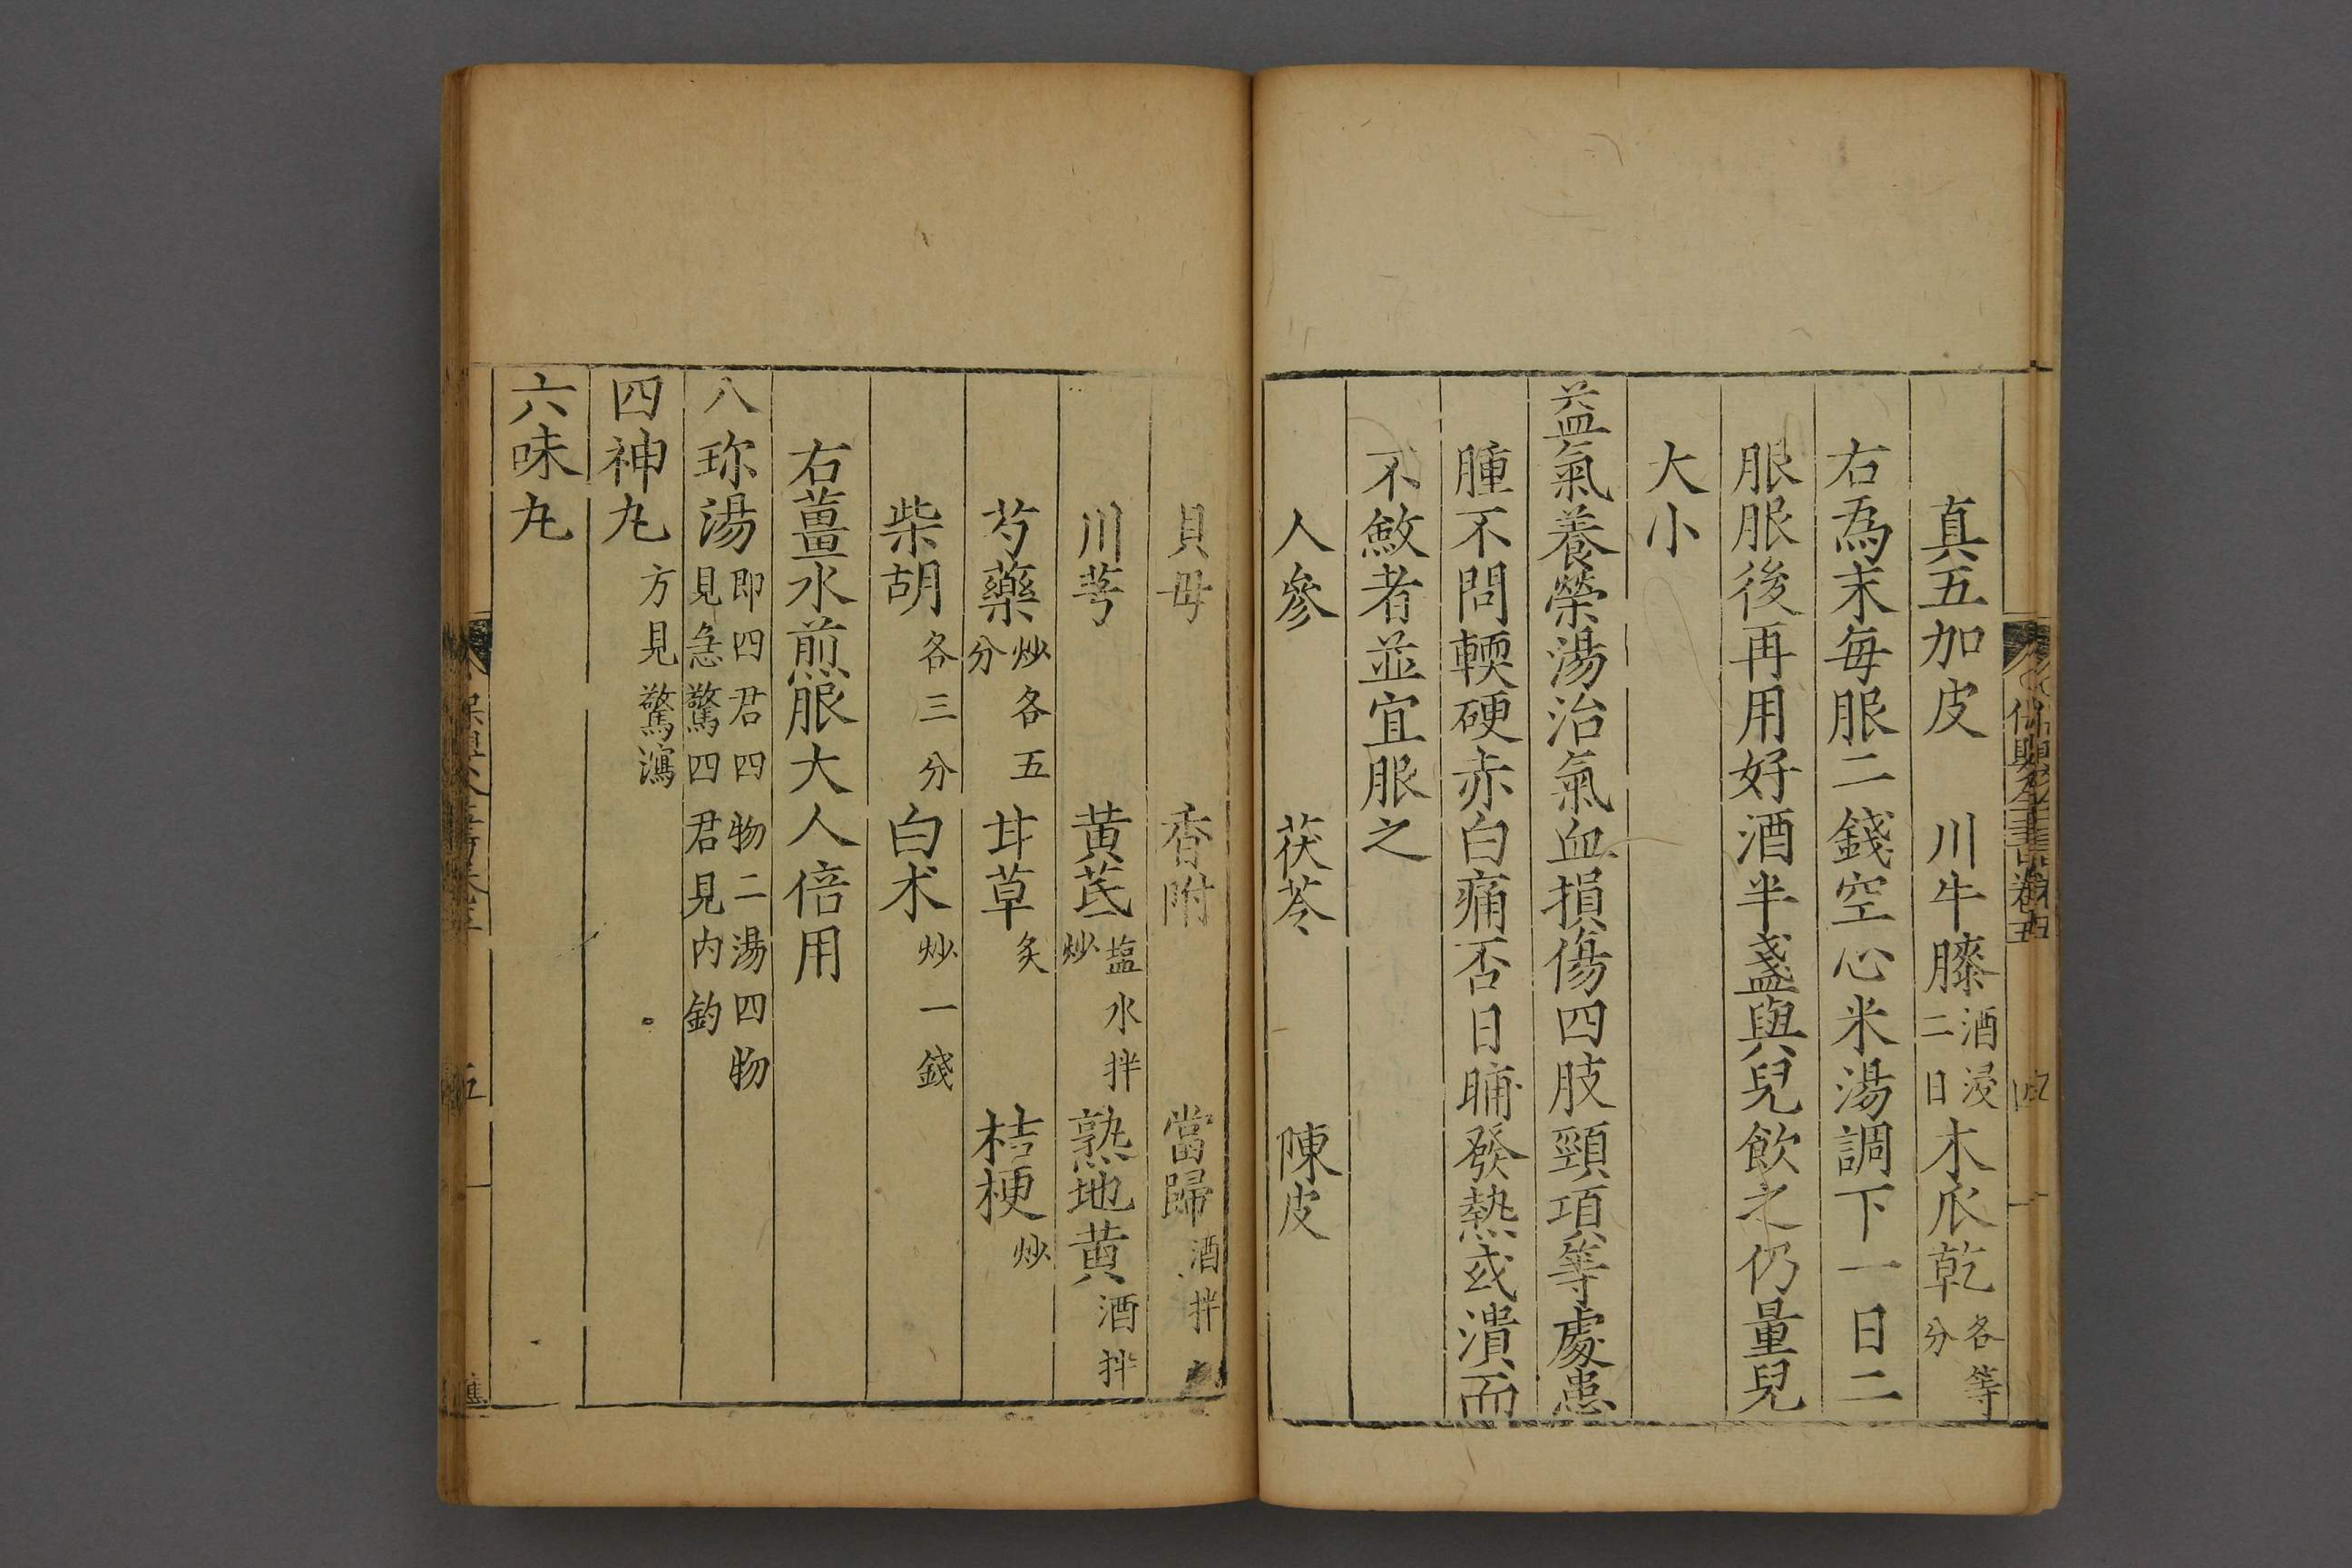 真五加皮 川牛膝酒浸二日木瓜乾各等分
右為末每服二錢空心米湯調下一日二
服服後再用好酒半盞與兒飲之仍量兒
大小
益氣養榮湯治氣血損傷四肢頸項等處患
腫不問輭硬赤白痛否日晡發熱或潰而
不斂者並宜服之
人參 茯苓 陳皮
貝母 香附 當歸酒拌
川芎 黄芪塩水拌炒 熟地黄酒拌
芍藥炒各五分 甘草炙 桔梗炒
柴胡各三分 白术炒一錢
右薑水煎服大人倍用
八珎湯即四君四物二湯四物見急驚四君見内釣
四神丸方見驚瀉
六味丸